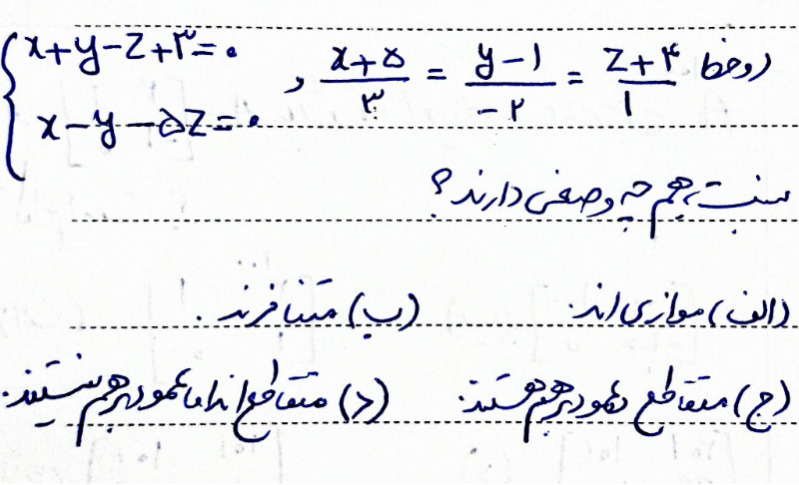 دو خط (x+۵)/۳ = (y-۱)/-۲ = (z+۴)/۱ , { x+y-z+۳=۰
x-y-۵z=۰
نسبت بهم چه وضعی دارند؟
(الف) موازی اند. (ب) متنافرند.
(ج) متقاطع و عمود برهم هستند. (د) متقاطع اند اما عمود برهم نیستند.